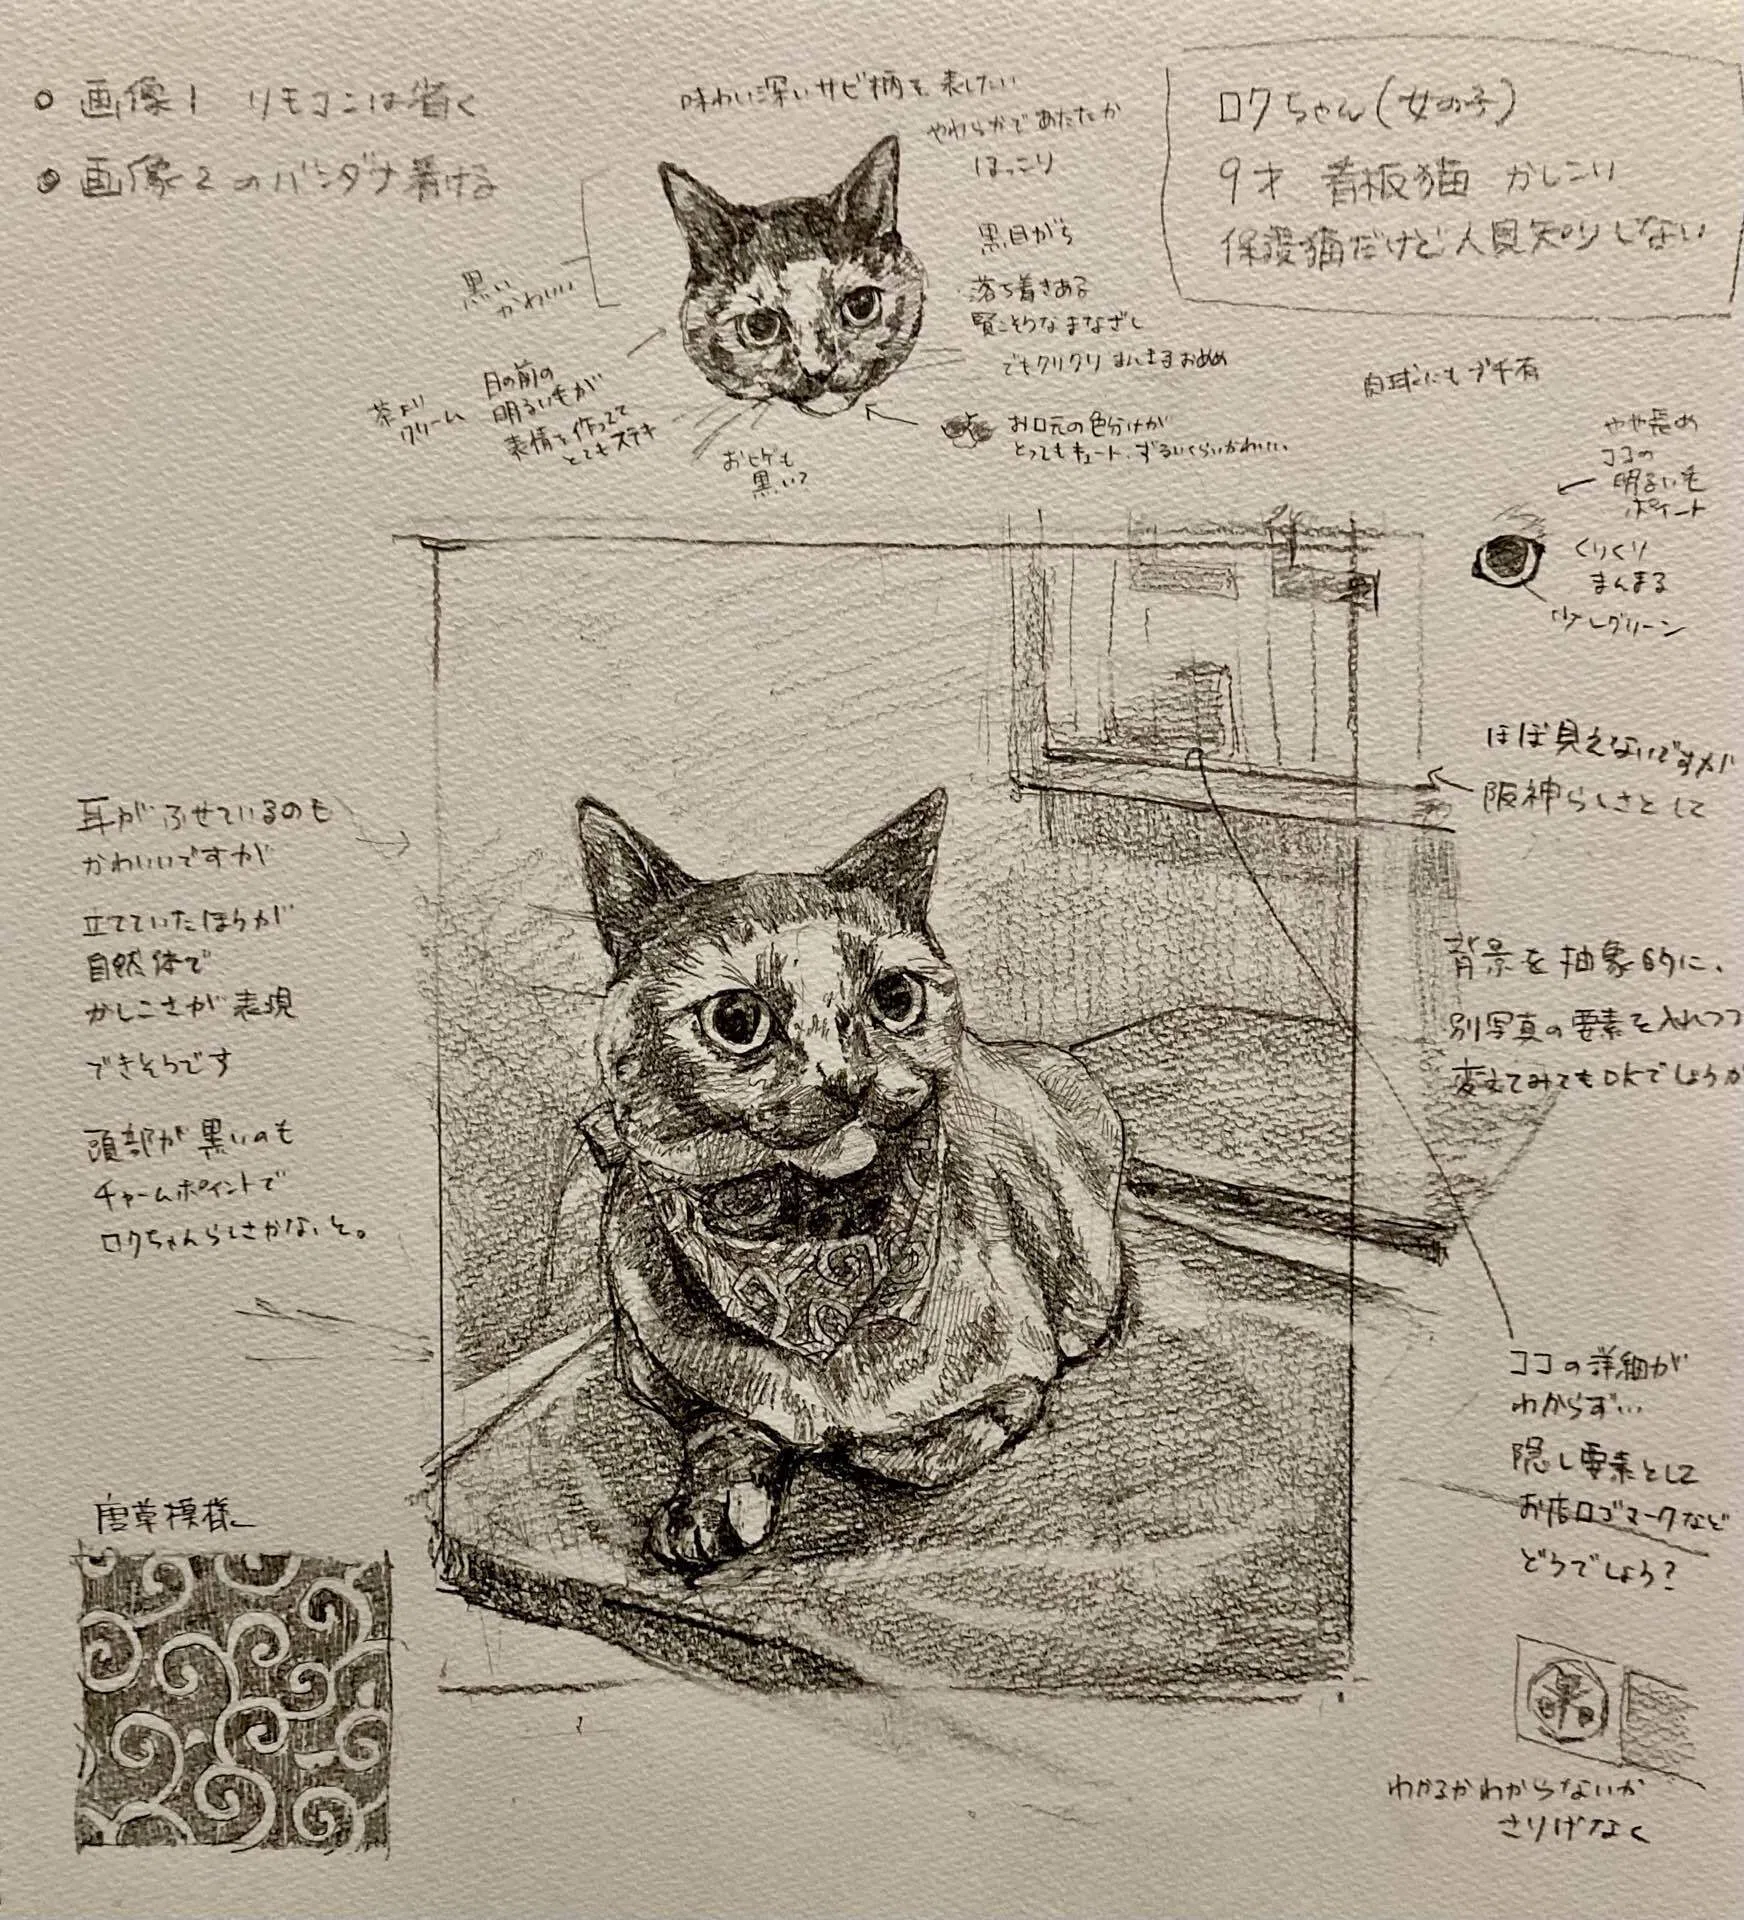 ○ 画像1 リモコンは省く
● 画像2のバンダナ着ける
味わい深いサビ柄を表したい
やわらかであたたか
ほっこり
ロクちゃん(女の子)
9才 看板猫 かしこい
保護猫だけど人見知りしない
黒い
かわいい
黒目がち
落ち着きある
賢こそうなまなざし
でもクリクリまんまるおめめ
目の前の
明るい毛が
表情を作ってて
とてもステキ
茶より
クリーム
お口元の色分けが
とってもキュート、ずるいくらいかわいい
おヒゲも
黒い?
肉球にもブチ有
やや長め
ココの
明るい毛
ポイント
くりくり
まんまる
少しグリーン
ほぼ見えないですが
阪神らしさとして
耳がふせているのも
かわいいですが
立てていたほうが
自然体で
かしこさが表現
できそうです
頭部が黒いのも
チャームポイントで
ロクちゃんらしさかな、と。
背景を抽象的に、
別写真の要素を入れつつ
変えてみてもOKでしょうか
ココの詳細が
わからず…
隠し要素として
お店ロゴマークなど
どうでしょう?
唐草模様
わかるかわからないか
さりげなく